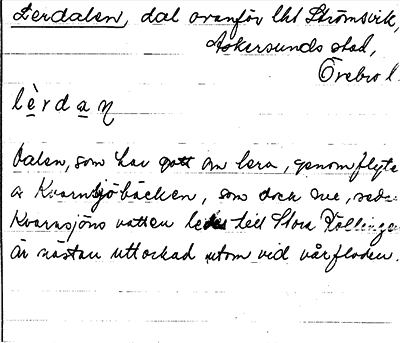 Lerdalen, dal ovanför lht Strömsvik,
Askersunds stad,
Örebro l.
lèrdaṇ
Dalen, som har gott om lera, genomflyte
av Kvarnsjöbäcken, som dock nu, sedan
Kvarnsjöns vatten ledes till Stora Kollinge
är nästan uttorkad utom vid vårfloden.